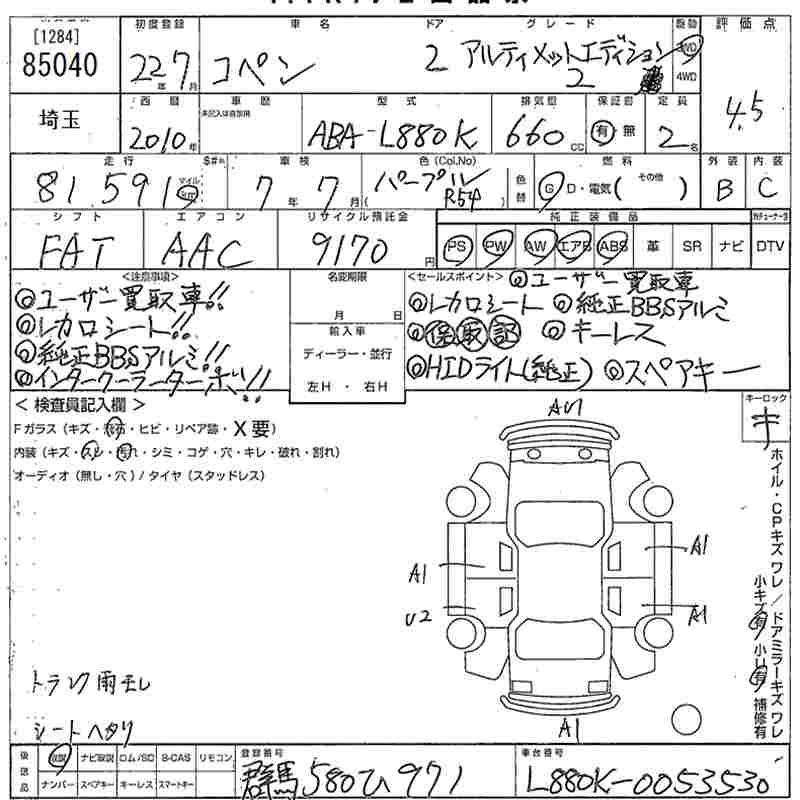 [1284]
85040
埼玉
初度登録
22年7月
車名
コペン
ドア
2
グレード
アルティメットエディション
2
駆動
2WD
4WD
評価点
4.5
西暦
2010年
車歴
未記入は自家用
型式
ABA-L880K
排気量
660cc
保証書
有・無
定員
2名
走行
81,591
マイル
km
S#
車検
7年7月
色(Col,No)
パープル
R54
色替
燃料
G D・電気( その他 )
外装
B
内装
C
シフト
FAT
エアコン
AAC
リサイクル預託金
9170円
純正装備品
PS PW AW エアB ABS 革 SR ナビ DTV
<注意事項>
◎ユーザー買取車!!
◎レカロシート!!
◎純正BBSアルミ!!
◎インタークーラーターボ!!
名変期限
月 日
輸入車
ディーラー・並行
左H ・ 右H
<セールスポイント>
◎ユーザー買取車
◎レカロシート ◎純正BBSアルミ
◎保取記 ◎キーレス
◎HIDライト(純正) ◎スペアキー
<検査員記入欄>
Fガラス(キズ・飛石・ヒビ・リペア跡・X要)
内装(キズ・スレ・汚れ・シミ・コゲ・穴・キレ・破れ・割れ)
オーディオ(無し・穴)/タイヤ(スタッドレス)
キーロック
キ
AU1
A1
A1
U2
A1
A1
ホイル・CPキズ ワレ/ドアミラーキズ ワレ
小キズ有 小U有 補修有
トランク雨モレ
シートヘタリ
後送品
取説 ナビ取説 ロム/SD B-CAS リモコン
ナンバー スペアキー キーレス スマートキー
登録番号
群馬580ひ971
車台番号
L880K-0053530